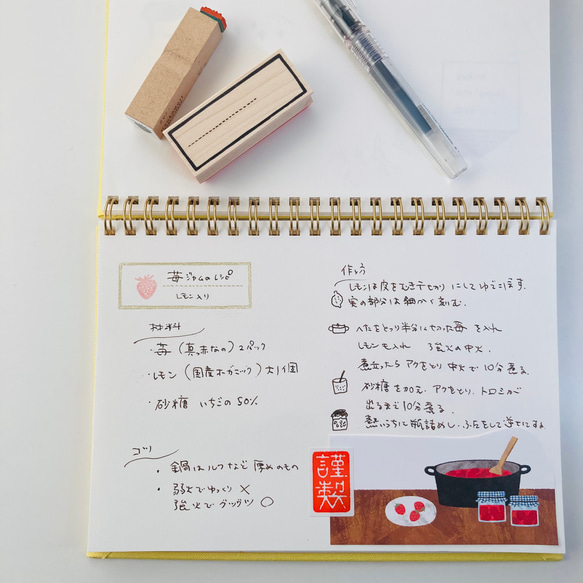 苺ジャムのレシピ
レモン入り
材料
・苺(真っ赤なの)2パック
・レモン(国産オーガニック)大1個
・砂糖 いちごの50%
コツ
・鍋はルクなど厚めのもの
・弱火でゆっくり ×
強火でグツグツ ○
作り方
レモンは皮をむき千切りにしてゆでこぼす。
実の部分は細かく刻む。
へたをとり半分に切った苺を入れ
レモンも入れ 強火の中火.
煮立ったらアクをとり 中火で10分煮る.
砂糖を加え、アクをとり、トロミが
出るまで10分煮る.
熱いうちに瓶詰めし、ふたをして逆さにする
謹製